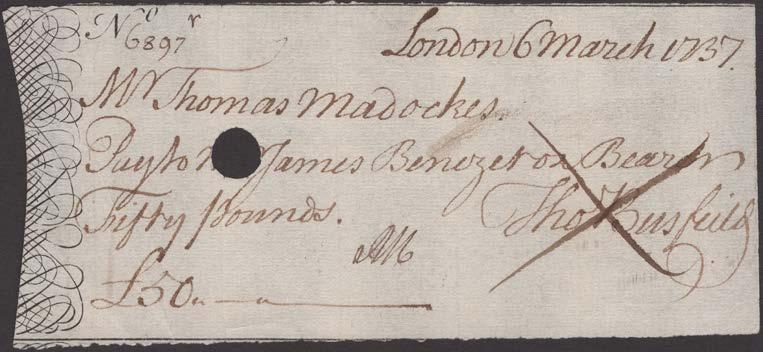 No
6897 r
London 6 March 1737.
Mr Thomas Madockes.
Pay to James Benezet or Bearer
Fifty pounds.
Tho
AM
£50